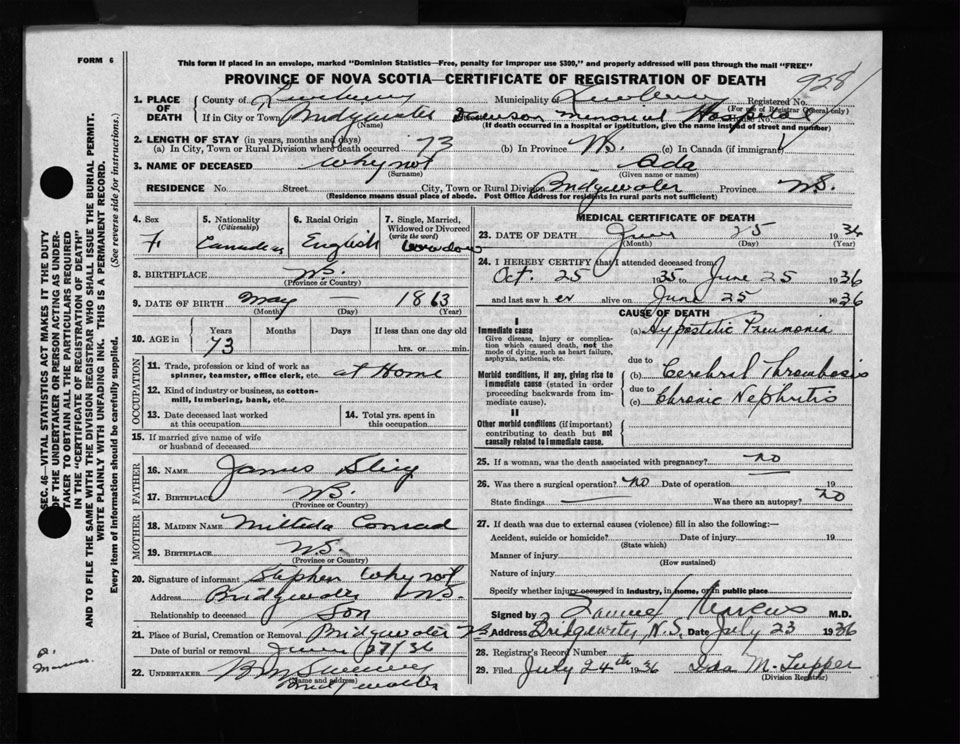 FORM 6
This form if placed in an envelope, marked "Dominion Statistics—Free, penalty for improper use $300," and properly addressed will pass through the mail "FREE"
PROVINCE OF NOVA SCOTIA—CERTIFICATE OF REGISTRATION OF DEATH
928
1. PLACE OF DEATH
County of Lunenburg Municipality of Registered No.
(For use of Registrar General only)
If in City or Town Bridgewater Memorial Hospital House No.
(Name) (If death occurred in a hospital or institution, give name instead of street and number)
2. LENGTH OF STAY (in years, months and days)
(a) In City, Town or Rural Division where death occurred 73 (b) In Province N.S. (c) In Canada (if immigrant)
3. NAME OF DECEASED Whynot Ada
(Surname) (Given name or names)
RESIDENCE No. Street City, Town or Rural Division Bridgewater Province N.S.
(Residence means usual place of abode. Post Office Address for residents in rural parts not sufficient)
4. Sex 5. Nationality (Citizenship) 6. Racial Origin 7. Single, Married, Widowed or Divorced (write the word)
F. Canadian English Widow
8. BIRTHPLACE N.S.
(Province or Country)
9. DATE OF BIRTH May — 1863
(Month) (Day) (Year)
10. AGE in Years Months Days If less than one day old
73 hrs. or min.
OCCUPATION
11. Trade, profession or kind of work as spinner, teamster, office clerk, etc. at Home
12. Kind of industry or business, as cotton-mill, lumbering, bank, etc.
13. Date deceased last worked at this occupation
14. Total yrs. spent in this occupation
15. If married give name of wife or husband of deceased
FATHER
16. NAME James
17. BIRTHPLACE N.S.
(Province or Country)
MOTHER
18. MAIDEN NAME Conrad
19. BIRTHPLACE N.S.
(Province or Country)
20. Signature of informant Stephen Whynot
Address Bridgewater N.S.
Relationship to deceased Son
21. Place of Burial, Cremation or Removal Bridgewater N.S.
Date of burial or removal June 27/36
22. UNDERTAKER
(Name and address) Bridgewater
MEDICAL CERTIFICATE OF DEATH
23. DATE OF DEATH June 25 1936
(Month) (Day) (Year)
24. I HEREBY CERTIFY that I attended deceased from
Oct. 25 1935 to June 25 1936
and last saw her alive on June 25 1936
CAUSE OF DEATH
I
Immediate cause
Give disease, injury or complication which caused death, not the mode of dying, such as heart failure, asphyxia, asthenia, etc.
(a) Hypostatic Pneumonia
due to
Morbid conditions, if any, giving rise to immediate cause (stated in order proceeding backwards from immediate cause).
(b) Cerebral Thrombosis
due to
(c) Chronic Nephritis
II
Other morbid conditions (if important) contributing to death but not causally related to immediate cause.
25. If a woman, was the death associated with pregnancy? no
26. Was there a surgical operation? no Date of operation — 19
State findings — Was there an autopsy? no
27. If death was due to external causes (violence) fill in also the following:—
Accident, suicide or homicide? Date of injury 19
(State which)
Manner of injury
(How sustained)
Nature of injury
Specify whether injury occurred in industry, in home, or in public place
Signed by Marcus M.D.
Address Bridgewater, N.S. Date July 23 1936
28. Registrar's Record Number
29. Filed July 24th 1936 Ida M. Tupper
(Division Registrar)
SEC. 46—VITAL STATISTICS ACT MAKES IT THE DUTY
OF THE UNDERTAKER OR PERSON ACTING AS UNDER-
TAKER TO OBTAIN ALL THE PARTICULARS REQUIRED
IN THE "CERTIFICATE OF REGISTRATION OF DEATH"
AND TO FILE THE SAME WITH THE DIVISION REGISTRAR WHO SHALL ISSUE THE BURIAL PERMIT.
WRITE PLAINLY WITH UNFADING INK. THIS IS A PERMANENT RECORD.
Every item of Information should be carefully supplied. (See reverse side for instructions.)